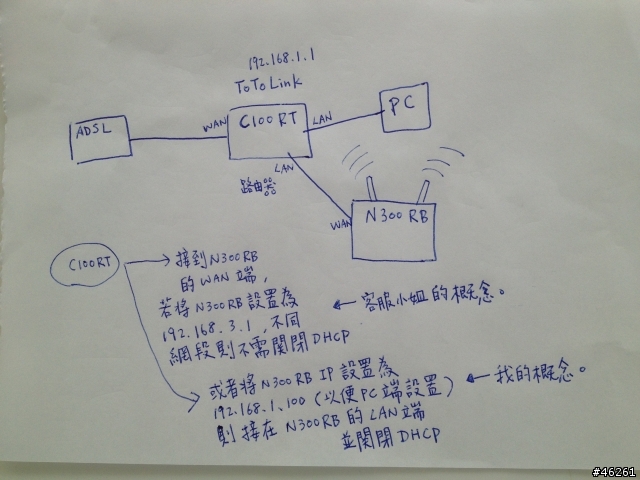 192.168.1.1
ToToLink
ADSL
WAN
C100RT
LAN
PC
LAN
路由器
WAN
N300RB
C100RT
接到N300RB
的WAN端,
若將N300RB設置為
192.168.3.1,不同
網段則不需關閉DHCP
客服小姐的概念。
或者將N300RB IP設置為
192.168.1.100(以便PC端設置)
則接在N300RB的LAN端
並關閉DHCP
我的概念。
#46261